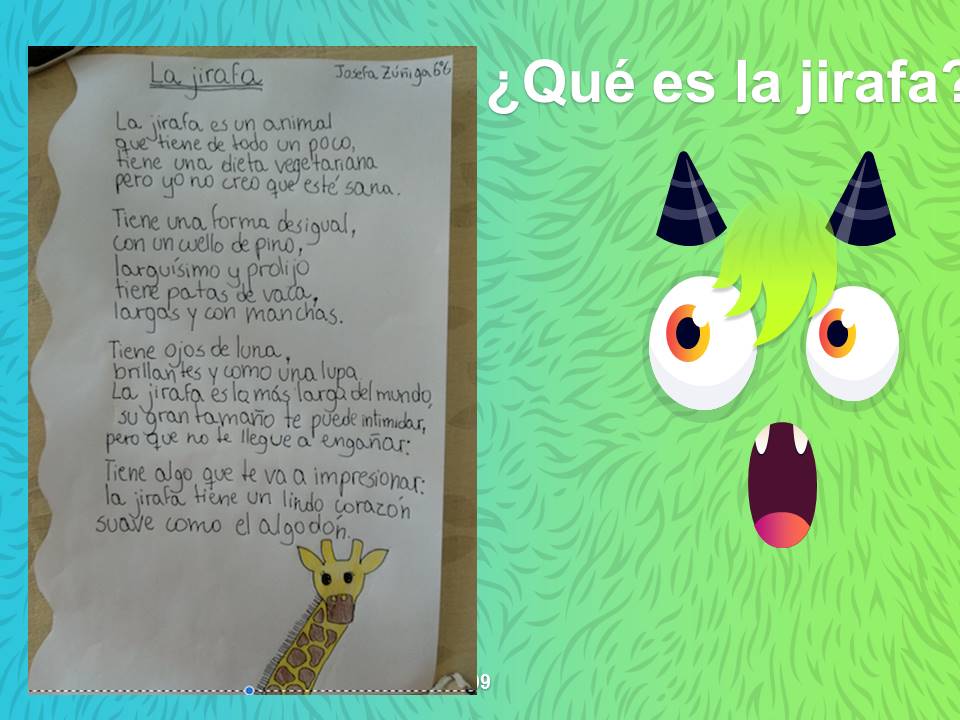 La jirafa
Josefa Zúñiga 6°b
La jirafa es un animal
que tiene de todo un poco,
tiene una dieta vegetariana
pero yo no creo que esté sana.
Tiene una forma desigual,
con un cuello de pino,
larguísimo y prolijo
tiene patas de vaca,
largas y con manchas.
Tiene ojos de luna,
brillantes y como una lupa
La jirafa es la más larga del mundo,
su gran tamaño te puede intimidar,
pero que no te llegue a engañar:
Tiene algo que te va a impresionar:
la jirafa tiene un lindo corazón
suave como el algodón.
¿Qué es la jirafa?
99